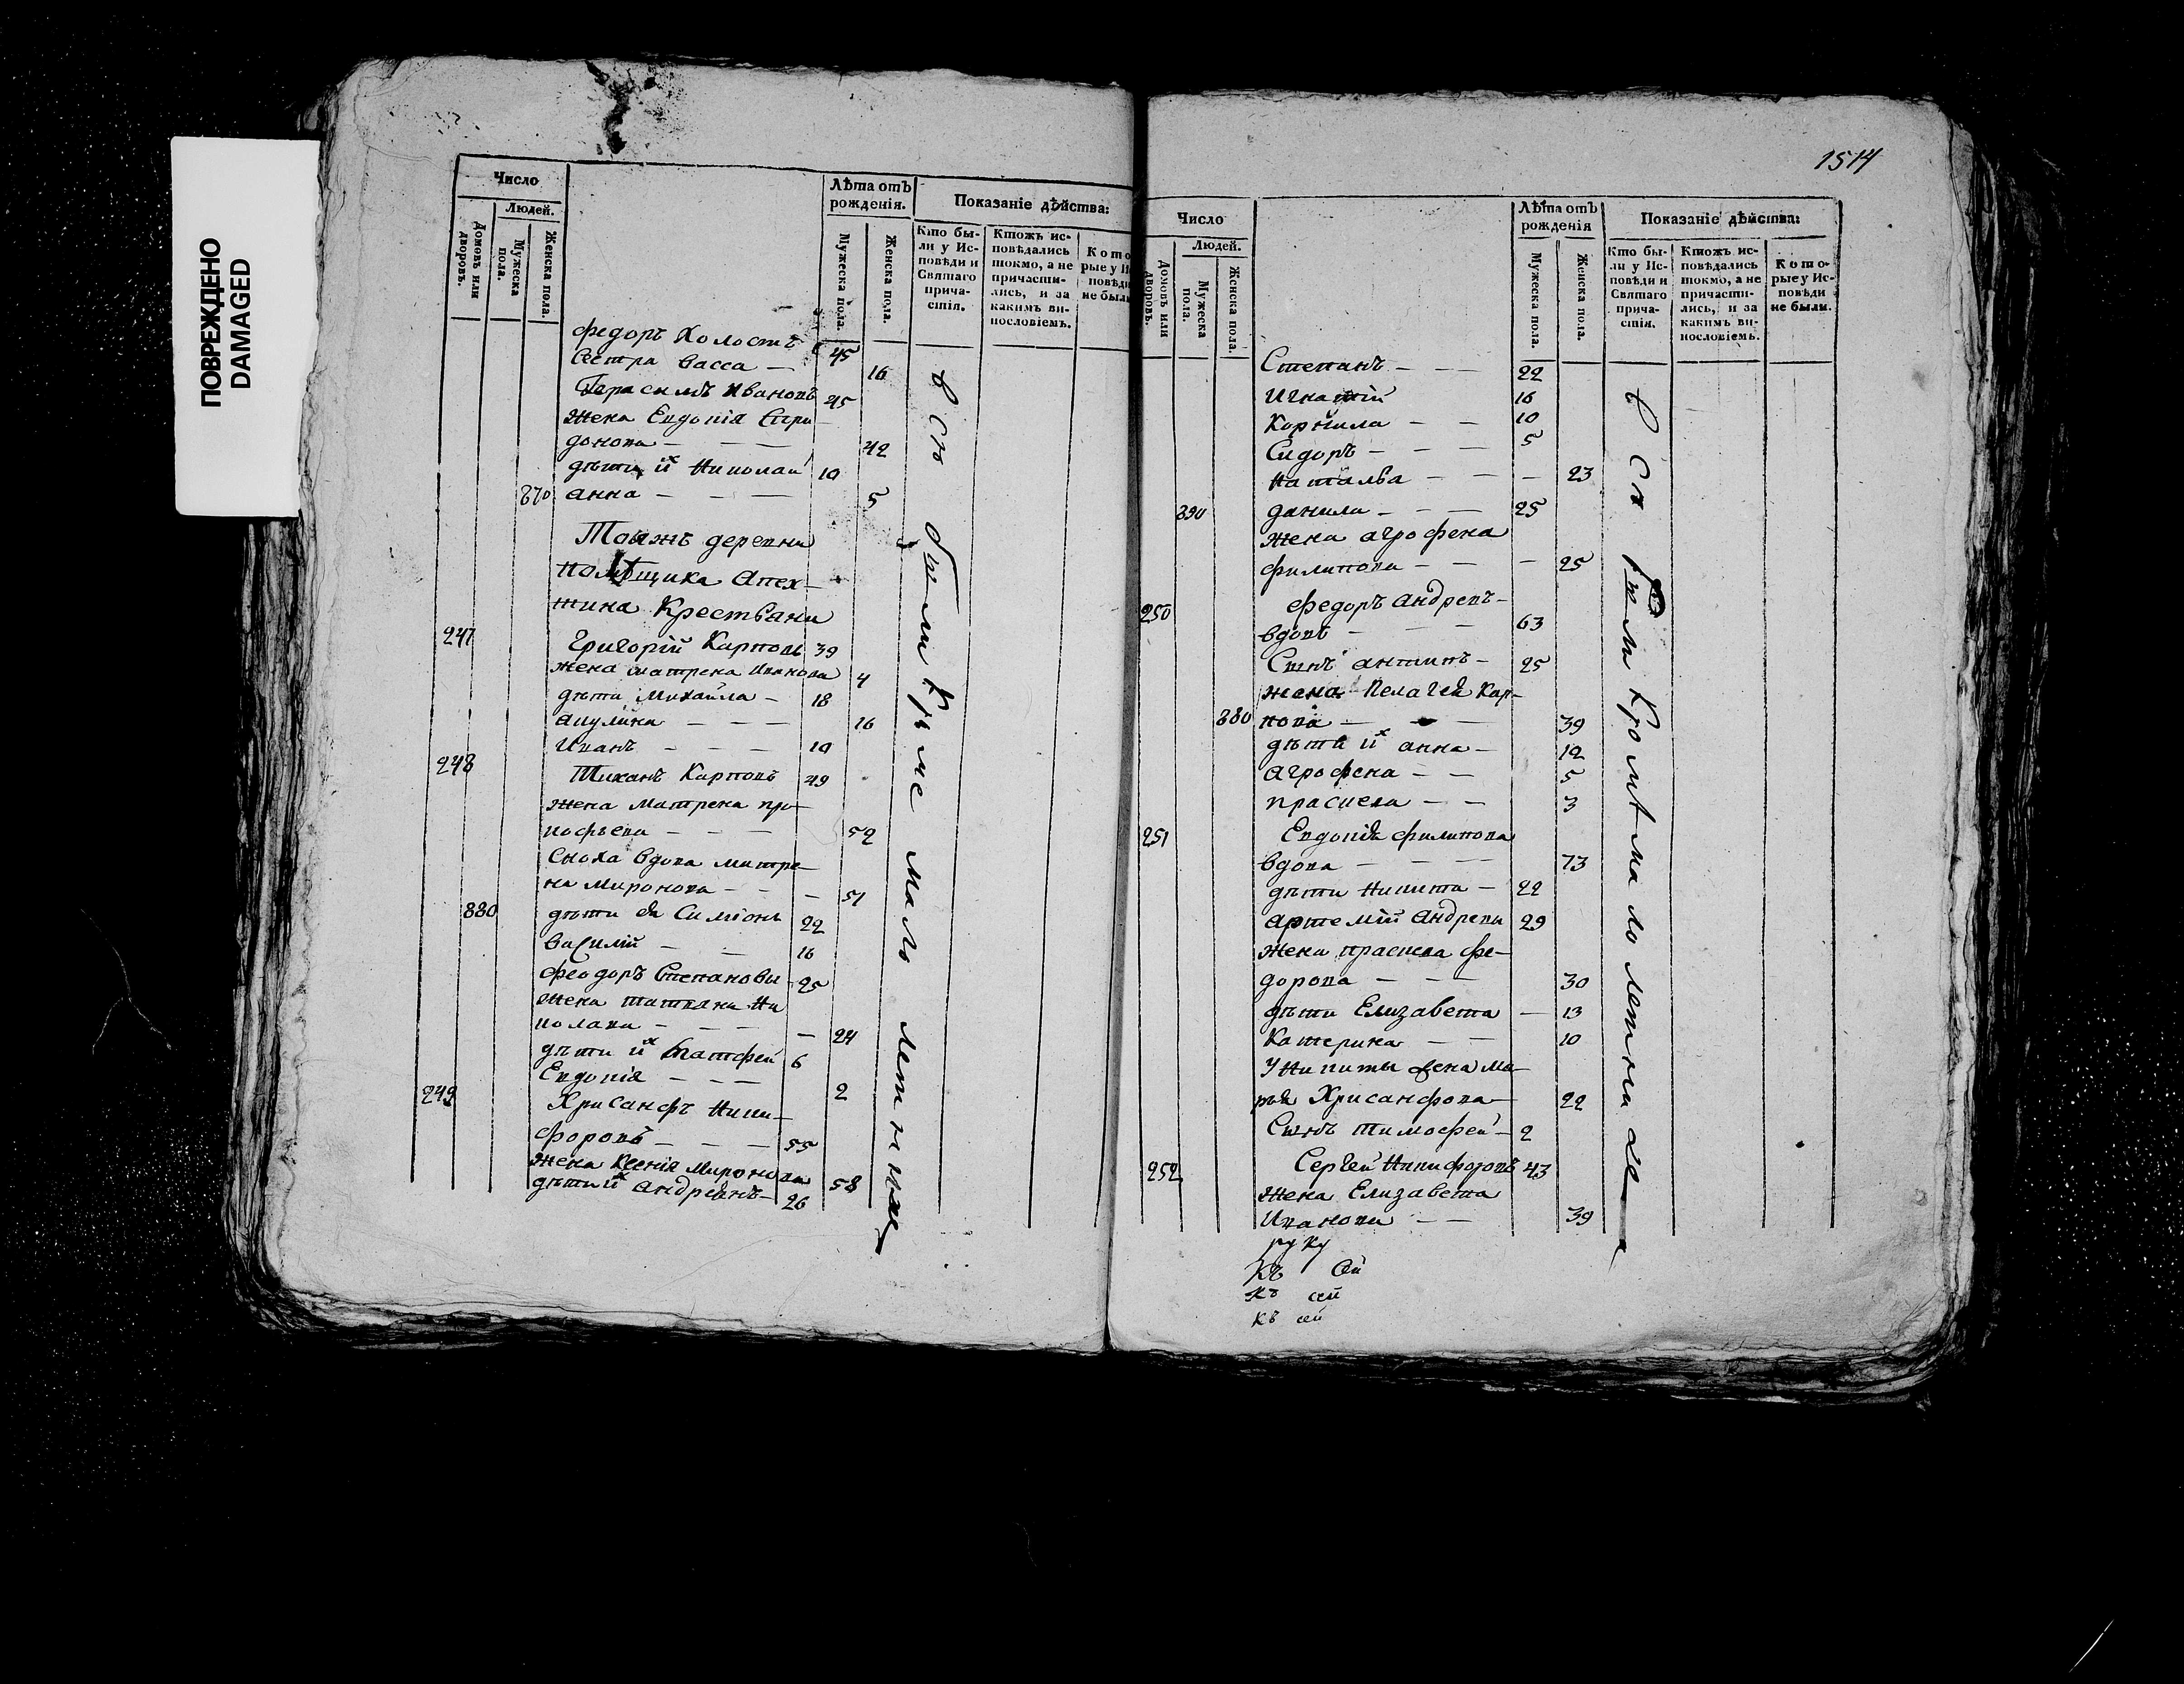 ПОВРЕЖДЕНО
DAMAGED
Число
Людей.
Домовъ или дворовъ.
Мужеска пола.
Женска пола.
Лѣта отъ рожденія.
Мужеска пола.
Женска пола.
Показаніе дѣйства:
Кто бы-
ли у Ис-
повѣди и
Святаго
прича-
стія.
Ктожъ ис-
повѣдались
токмо, а не
причасти-
лись, и за
какимъ ви-
нословіемъ.
Кото
рые у Ис
повѣди
не были
федоръ Холостъ 45
Сестра Васса — 16
Герасимъ Ивановъ 45
жена Евдокія Спри
донова — — — 42
дѣти их Николай 10
870 анна — — — 5
Тояжъ деревни
помѣщика Апех-
тина Крестьяни
247 Григорій Карповъ 39
жена матрена Иванова 4
дѣти Михайла — 18
акулина — — — 16
Иванъ — — — 10
248 Тиханъ Карповъ 49
жена матрена про-
кофьева — — — 52
Сноха вдова матре-
на миронова — — — 51
880 дѣти ея Симіонъ 22
василій — — 16
феодоръ Степановы 25
жена татьяна Ни
колаева — — — 24
дѣти их матфей 6
Евдокія — — — 2
249 Хрисанфъ Ники-
форовъ — — — 55
жена Ксенія миронова 58
дѣти их андреянъ — 26
вси были кроме малолетнихъ
1514
Число
Людей.
Домовъ или дворовъ.
Мужеска пола.
Женска пола.
Лѣта отъ рожденія
Мужеска пола.
Женска пола.
Показаніе дѣйства:
Кто бы-
ли у Ис-
повѣди и
Святаго
прича-
стія.
Ктожъ ис-
повѣдались
токмо, а не
причасти-
лись, и за
какимъ ви-
нословіемъ.
Кото-
рые у Ис-
повѣди
не были.
Степанъ — — — 22
Игнатій 16
Корнила — — 10
Сидоръ — — — 5
наталья — — — 23
890 данила — — — 25
жена агрофена
филипова — — — 25
250 федоръ андреевъ —
вдовъ — — — 63
Сынъ антипъ — 25
жена Пелагея Кар-
880 пова — — — 39
дѣти их анна — 12
агрофена — — 5
прасковя — — 3
251 Евдокія филипова
вдова — — — 73
дѣти никита — 22
артемій андреевы 29
жена прасковя фе-
дорова — — — 30
дѣти Елизавета — 13
Катерина — — 10
У никиты жена ма-
рья Хрисанфова — 22
Сынъ тимофей — 2
252 Сергей никифоровъ 43
жена Елизавета
Иванова — — 39
руку
къ сей
къ сей
къ сей